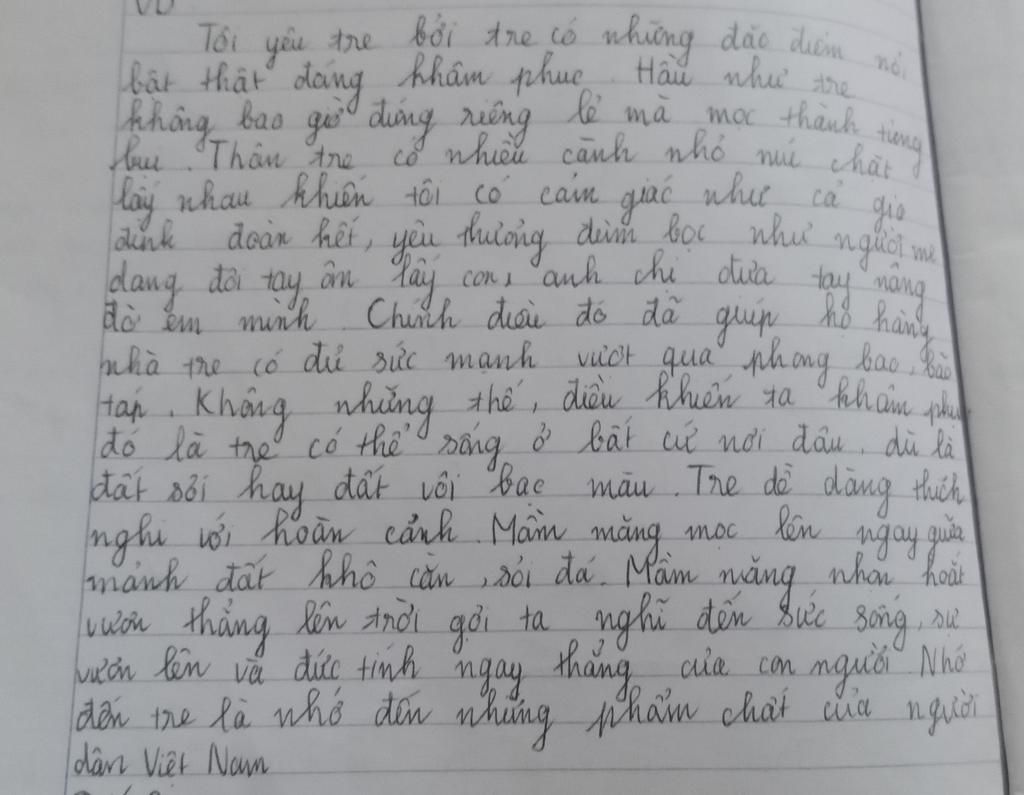 VD
Tôi yêu tre bởi tre có những đặc điểm nổi
bật thật đáng khâm phục. Hầu như tre
không bao giờ đứng riêng lẻ mà mọc thành từng
bụi. Thân tre có nhiều cành nhỏ níu chặt
lấy nhau khiến tôi có cảm giác như cả gia
đình đoàn kết, yêu thương đùm bọc như người mẹ
dang đôi tay ôm lấy con, anh chị đưa tay nâng
đỡ em mình. Chính điều đó đã giúp họ hàng
nhà tre có đủ sức mạnh vượt qua phong ba, bão
táp. Không những thế, điều khiến ta khâm phục
đó là tre có thể sống ở bất cứ nơi đâu, dù là
đất sỏi hay đất vôi bạc màu. Tre dễ dàng thích
nghi với hoàn cảnh. Mầm măng mọc lên ngay giữa
mảnh đất khô cằn, sỏi đá. Mầm măng nhọn hoắt
vươn thẳng lên trời gợi ta nghĩ đến sức sống, sự
vươn lên và đức tính ngay thẳng của con người. Nhớ
đến tre là nhớ đến những phẩm chất của người
dân Việt Nam